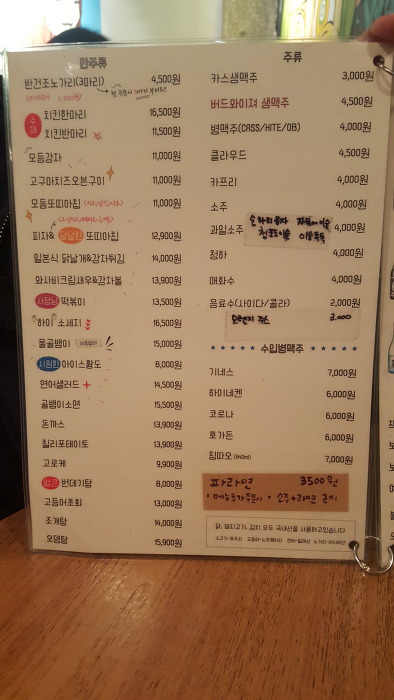 안주류
반건조노가리(3마리) 4,500원
수제
치킨한마리 16,500원
치킨반마리 11,500원
모듬감자 11,000원
고구마치즈오븐구이 11,000원
모듬또띠아칩 11,000원
피자& 달달한 또띠아칩 12,900원
일본식 닭날개&감자튀김 14,000원
와사비크림새우&감자볼 13,900원
사장님 떡볶이 13,500원
하이 소세지 16,500원
물골뱅이 15,000원
시원한 아이스황도 8,000원
연어샐러드 14,500원
골뱅이소면 15,500원
돈까스 13,900원
칠리포테이토 13,900원
고로케 9,900원
얼큰 번데기탕 8,000원
고등어조회 13,000원
조개탕 14,000원
오뎅탕 15,900원
주류
카스생맥주 3,000원
버드와이져 생맥주 4,500원
병맥주(CASS/HITE/OB) 4,000원
클라우드 4,500원
카프리 4,000원
소주 4,000원
과일소주 4,000원
순하리유자 자몽에이슬
청포도이슬
청하 4,000원
매화수 4,000원
음료수(사이다/콜라) 2,000원
오렌지 쥬스 3.000
수입병맥주
기네스 7,000원
하이네켄 6,000원
코로나 6,000원
호가든 6,000원
칭따오 (640ml) 7,000원
파라면 3500원
"메뉴추가주문시" 소주+라면 금지
닭, 돼지고기, 김치 모두 국내산을 사용하고있습니다